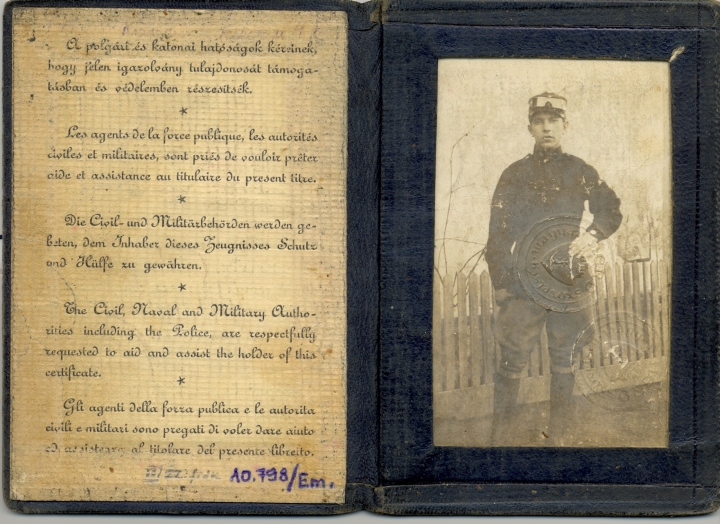 A polgári és katonai hatóságok kéretnek,
hogy jelen igazolvány tulajdonosát támoga-
tásban és védelemben részesítsék.
*
Les agents de la force publique, les autorités
civiles et militaires, sont priés de vouloir prêter
aide et assistance au titulaire du present titre.
*
Die Civil- und Militärbehörden werden ge-
beten, dem Inhaber dieses Zeugnisses Schutz
und Hülfe zu gewähren.
*
The Civil, Naval and Military Autho-
rities including the Police, are respectfully
requested to aid and assist the holder of this
certificate.
*
Gli agenti della forza publica e le autorita
civili e militari sono pregati di voler dare aiuto
ed assistenza al titolare del presente libreito.
10.798/Em.